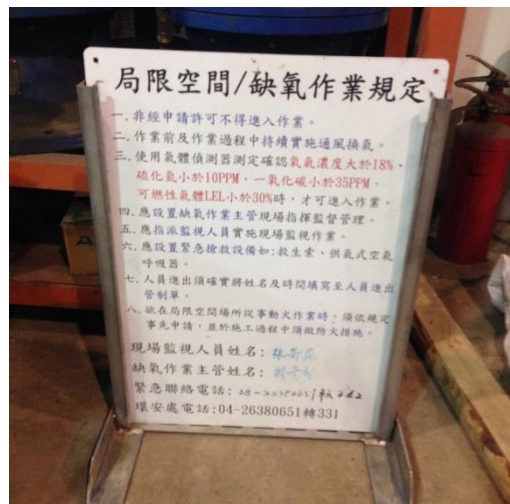 局限空間/缺氧作業規定
一.非經申請許可不得進入作業。
二.作業前及作業過程中持續實施通風換氣。
三.使用氣體偵測器測定確認氧氣濃度大於18%、
硫化氫小於10PPM、一氧化碳小於35PPM、
可燃性氣體LEL小於30%時，才可進入作業。
四.應設置缺氧作業主管現場指揮監督管理。
五.應指派監視人員實施現場監視作業。
六.應設置緊急搶救設備如:救生索、供氣式空氣
呼吸器。
七.人員進出須確實將姓名及時間填寫至人員進出
管制單。
八.欲在局限空間場所從事動火作業時，須依規定
事先申請，並於施工過程中須做防火措施。
現場監視人員姓名:
缺氧作業主管姓名:
緊急聯絡電話:
環安處電話:04-26380651轉331